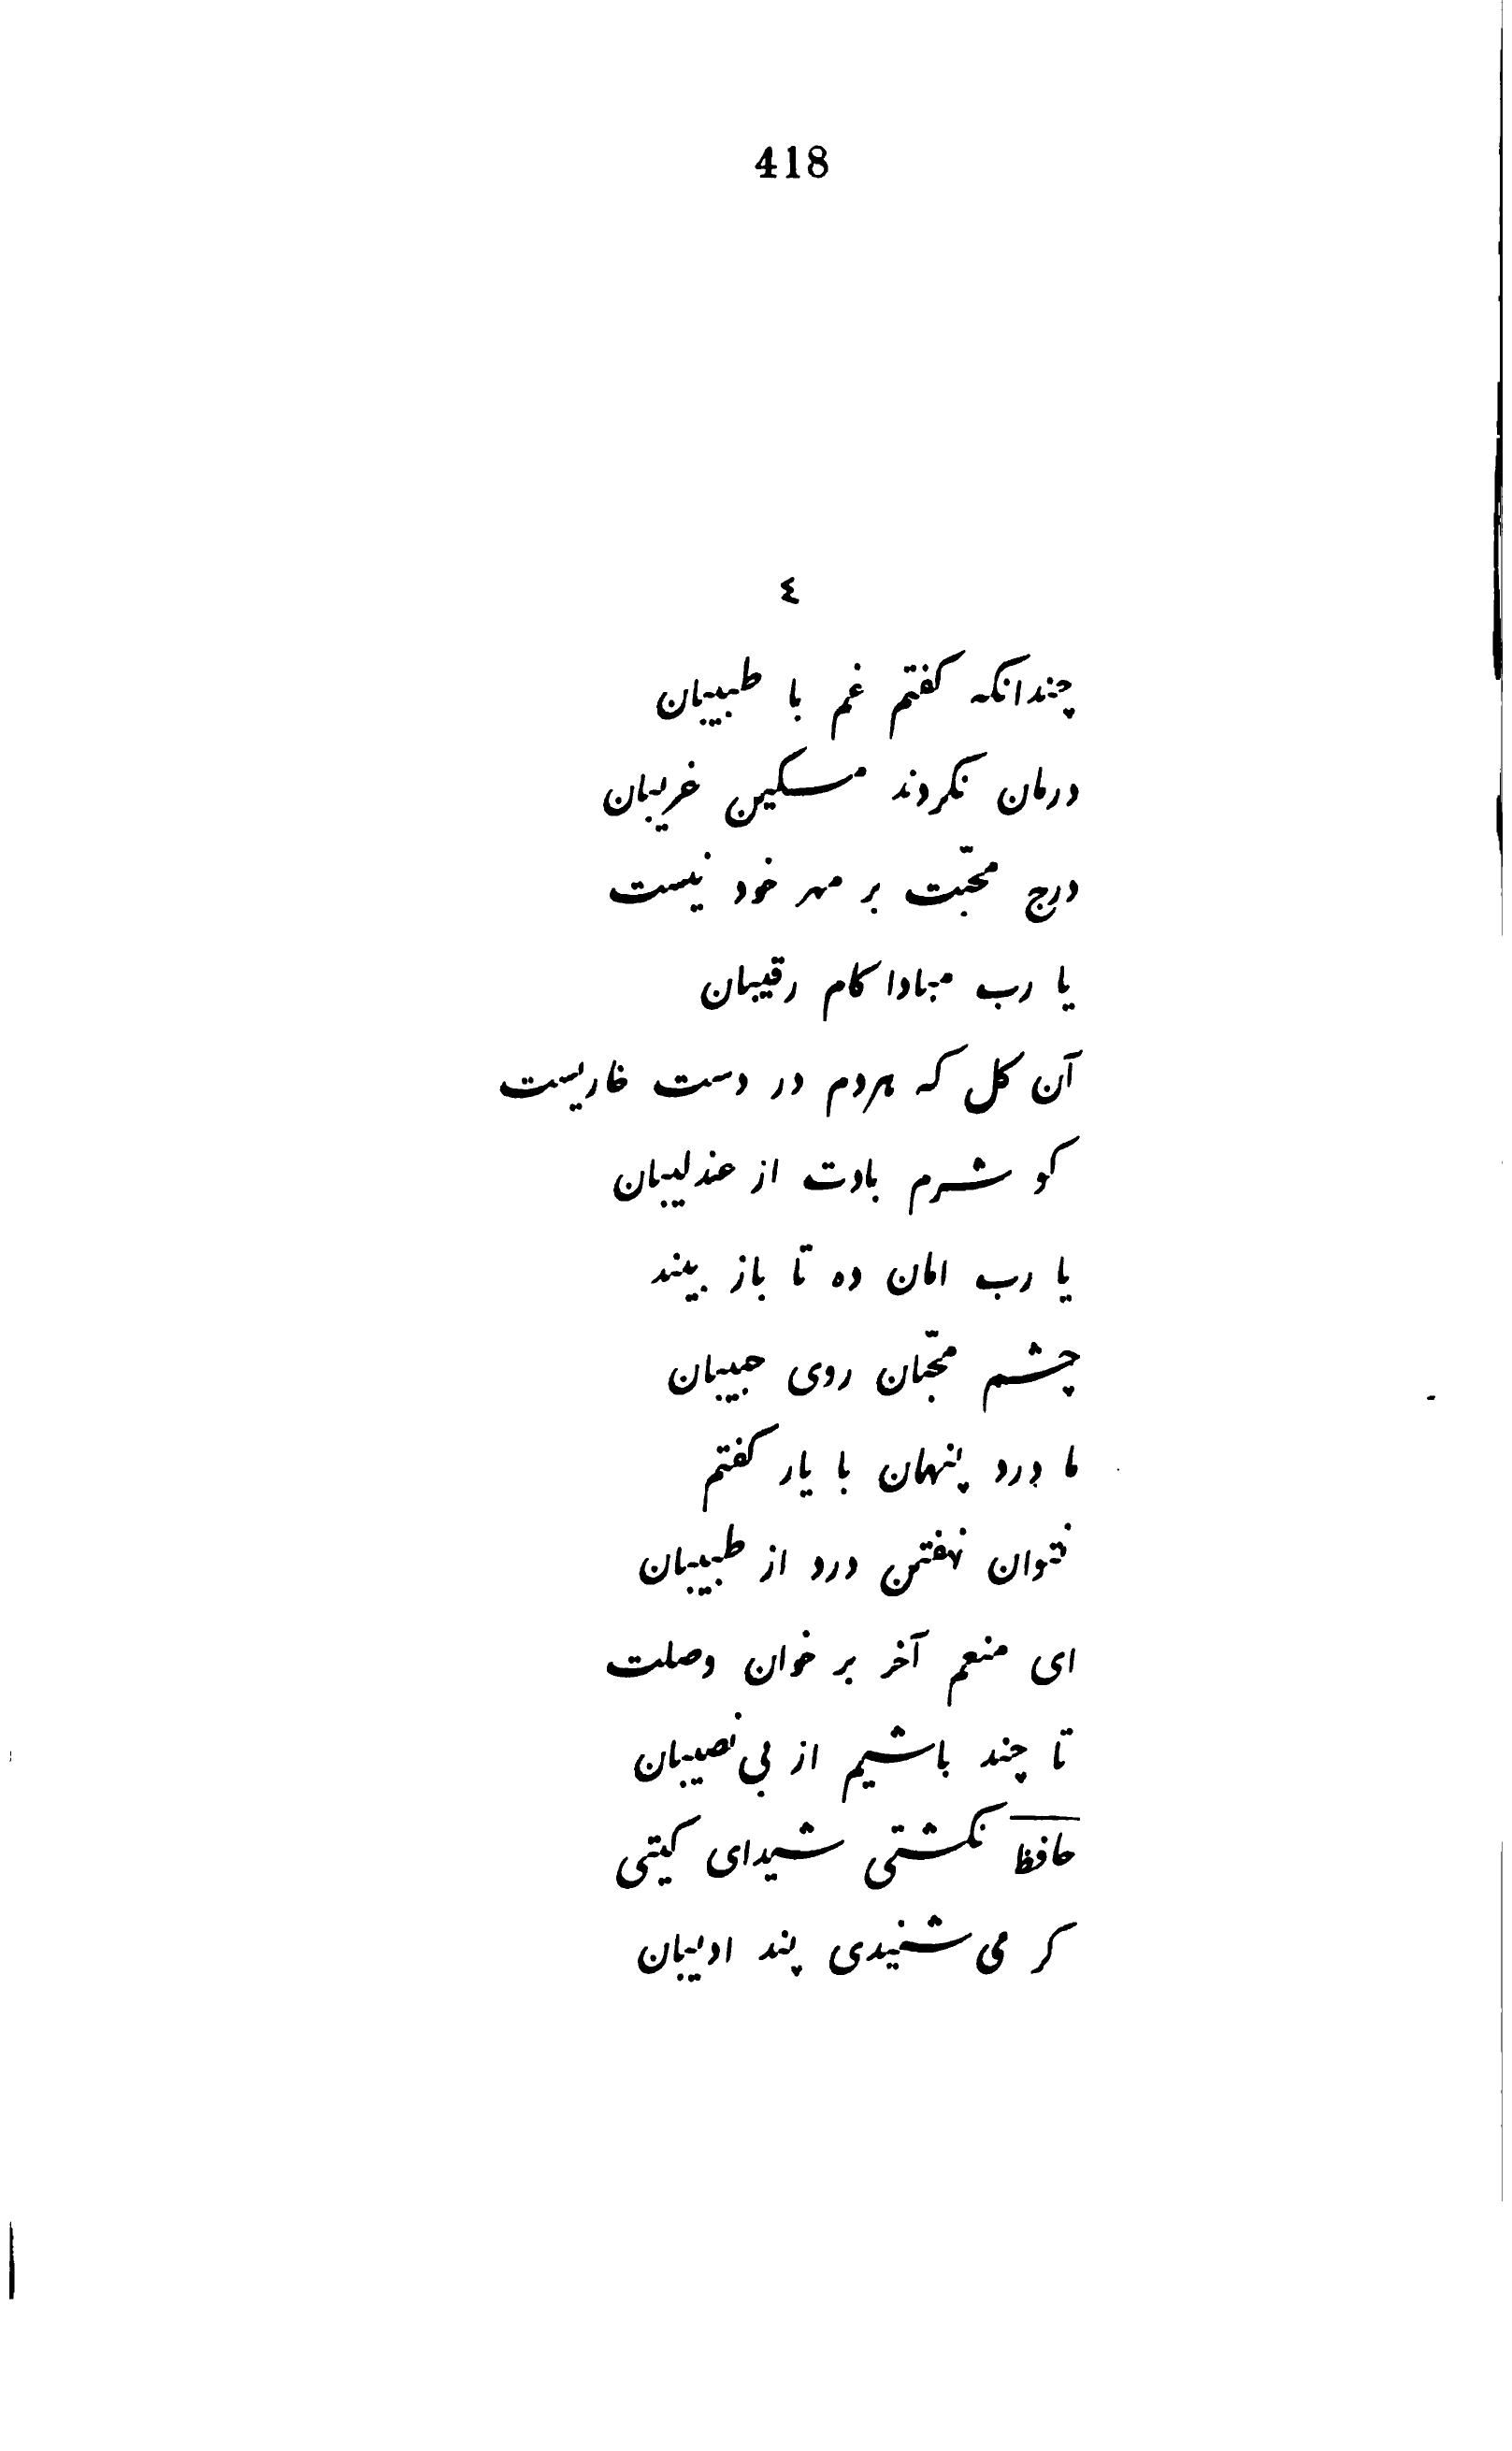 418
٤
چندانکه کفتم غم با طبیبان
درمان نکردند مسکین غریبان
درج محبّت بر مهر خود نیست
یا رب مبادا کام رقیبان
آن کل که هردم در دست خاریست
کو شرم بادت از عندلیبان
یا رب امان ده تا باز بیند
چشم محبّان روی حبیبان
ما درد پنهان با یار کفتم
نتوان نهفتن درد از طبیبان
ای منعم آخر بر خوان وصلت
تا چند باشیم از بی نصیبان
حافظ نکشتی شیدای کیتی
کر می شنیدی پند ادیبان